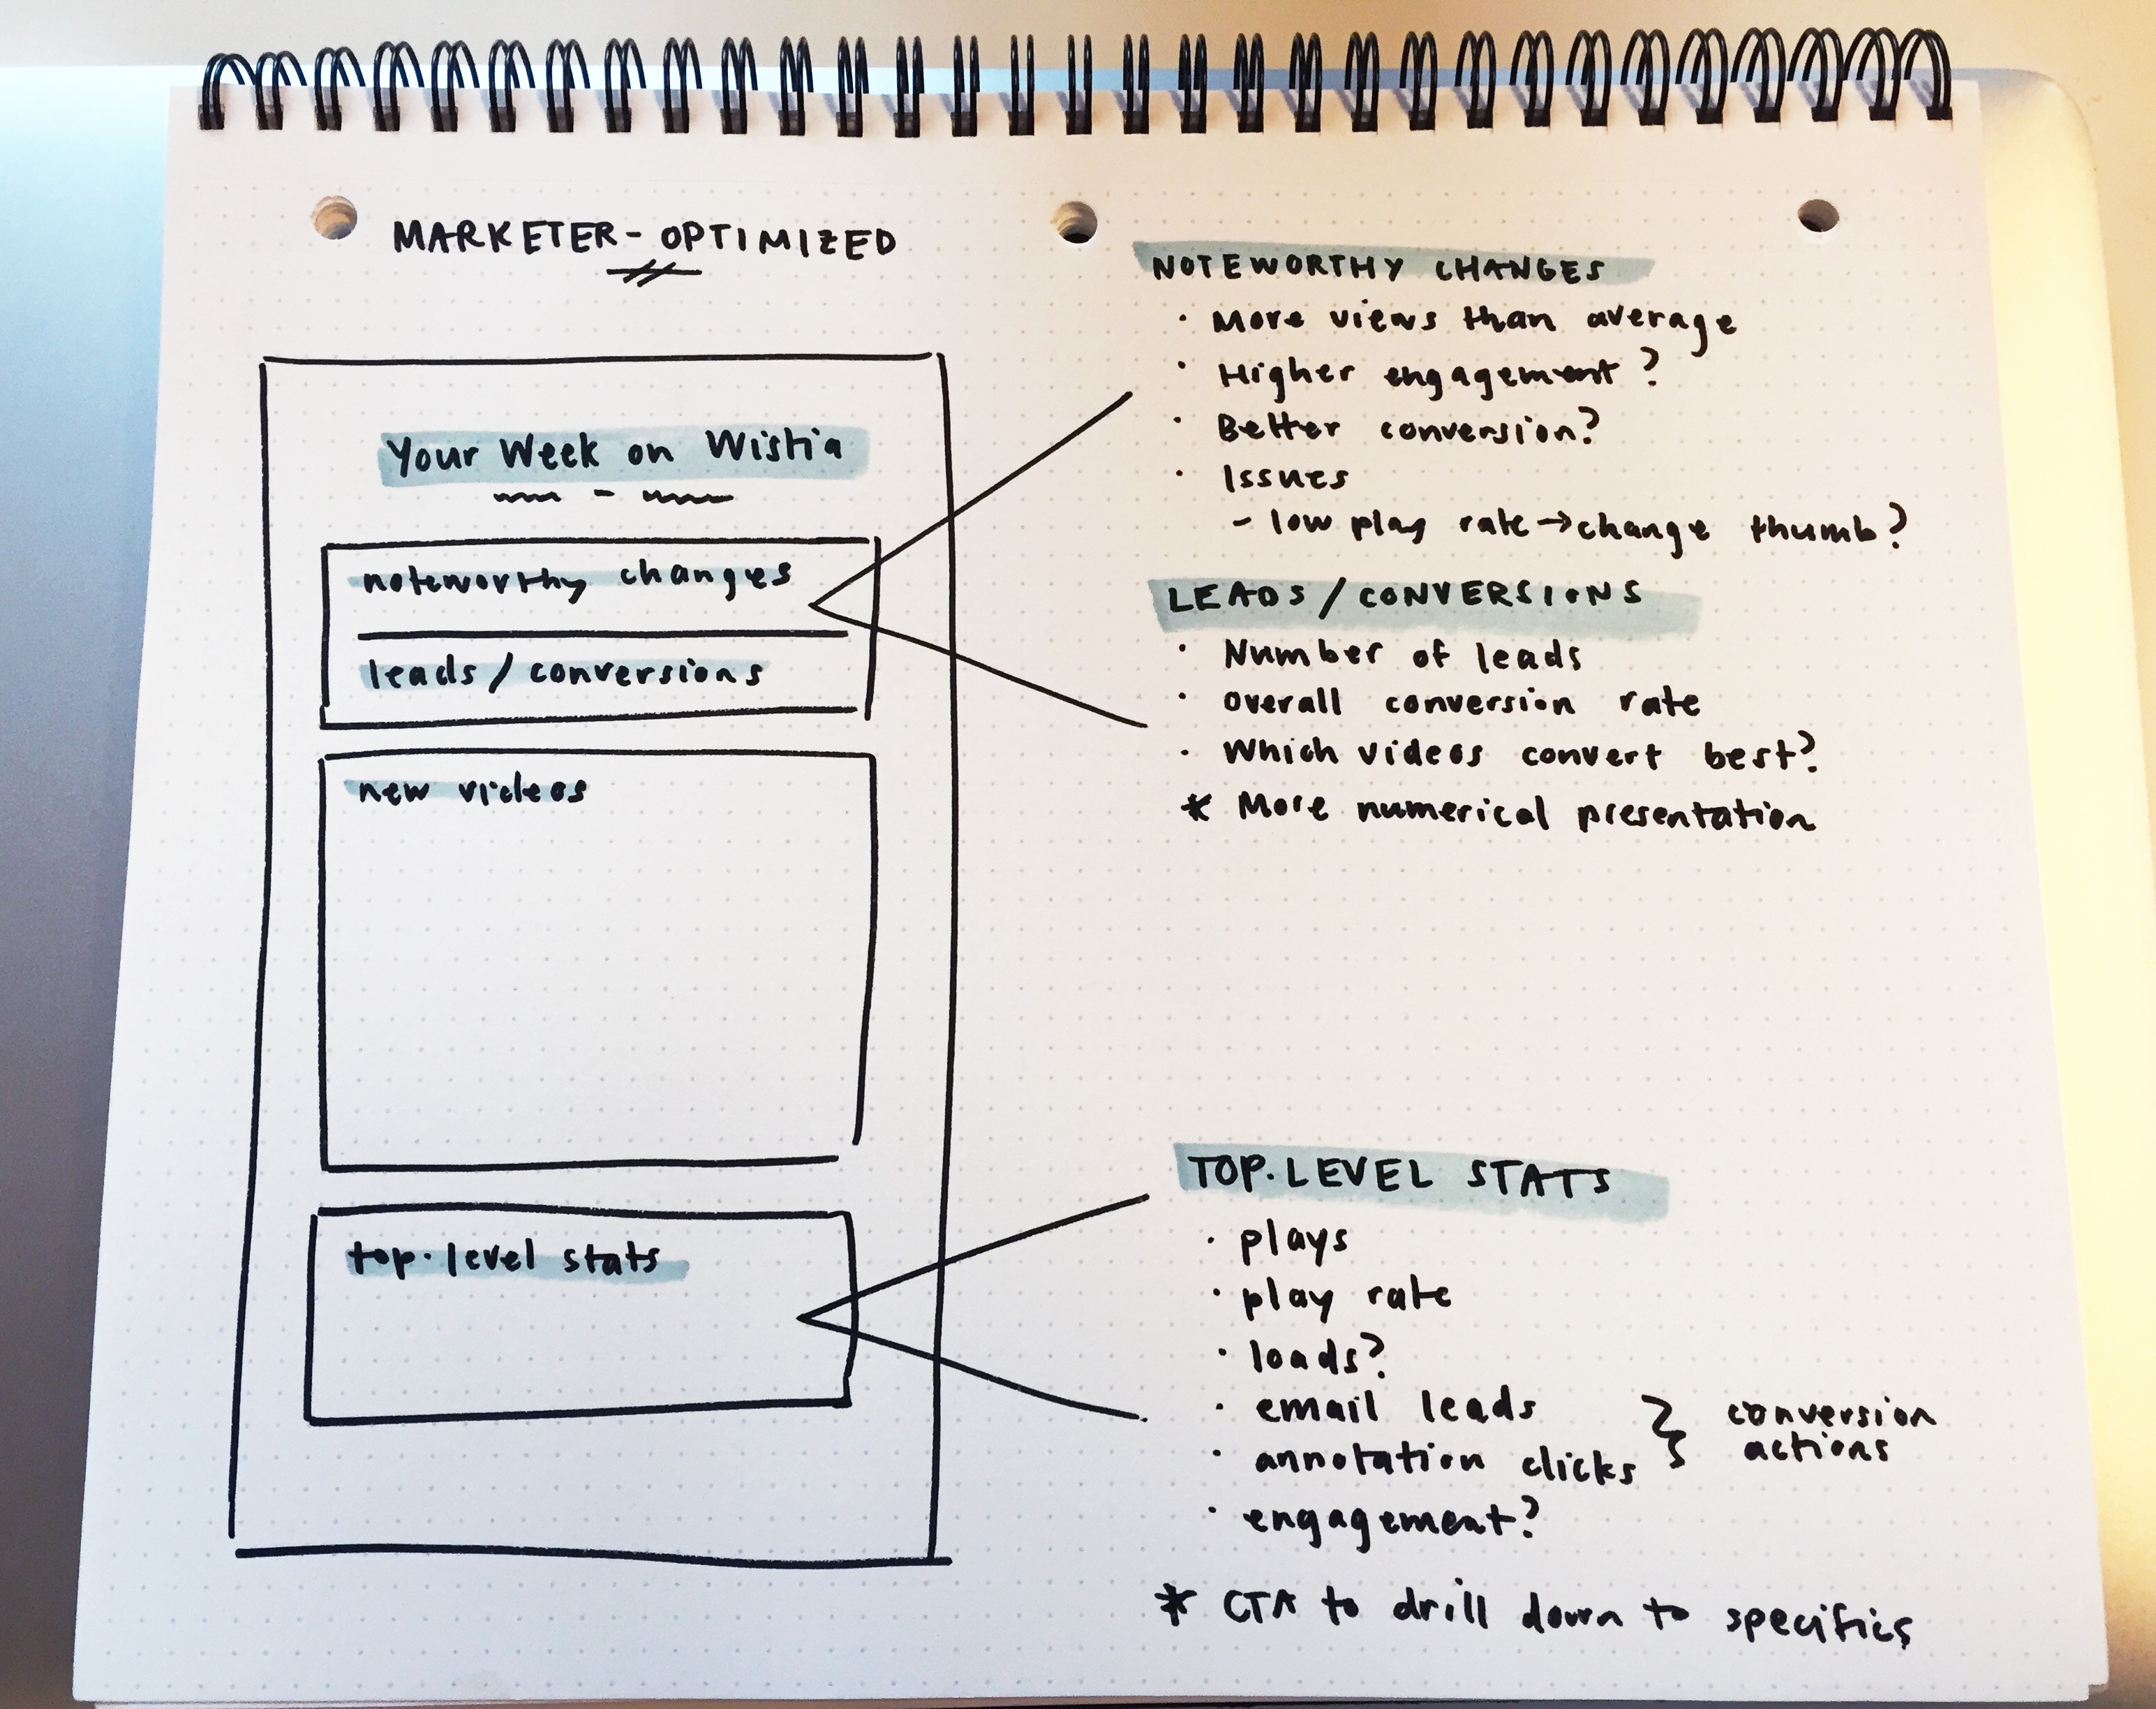 MARKETER-OPTIMIZED
Your Week on Wistia
noteworthy changes
leads/conversions
new videos
top.level stats
NOTEWORTHY CHANGES
· More views than average
· Higher engagement?
· Better conversion?
· Issues
- low play rate → change thumb?
LEADS/CONVERSIONS
· Number of leads
· Overall conversion rate
· Which videos convert best?
* More numerical presentation
TOP.LEVEL STATS
· plays
· play rate
· loads?
· email leads
· annotation clicks
} conversion
actions
· engagement?
* CTA to drill down to specifics